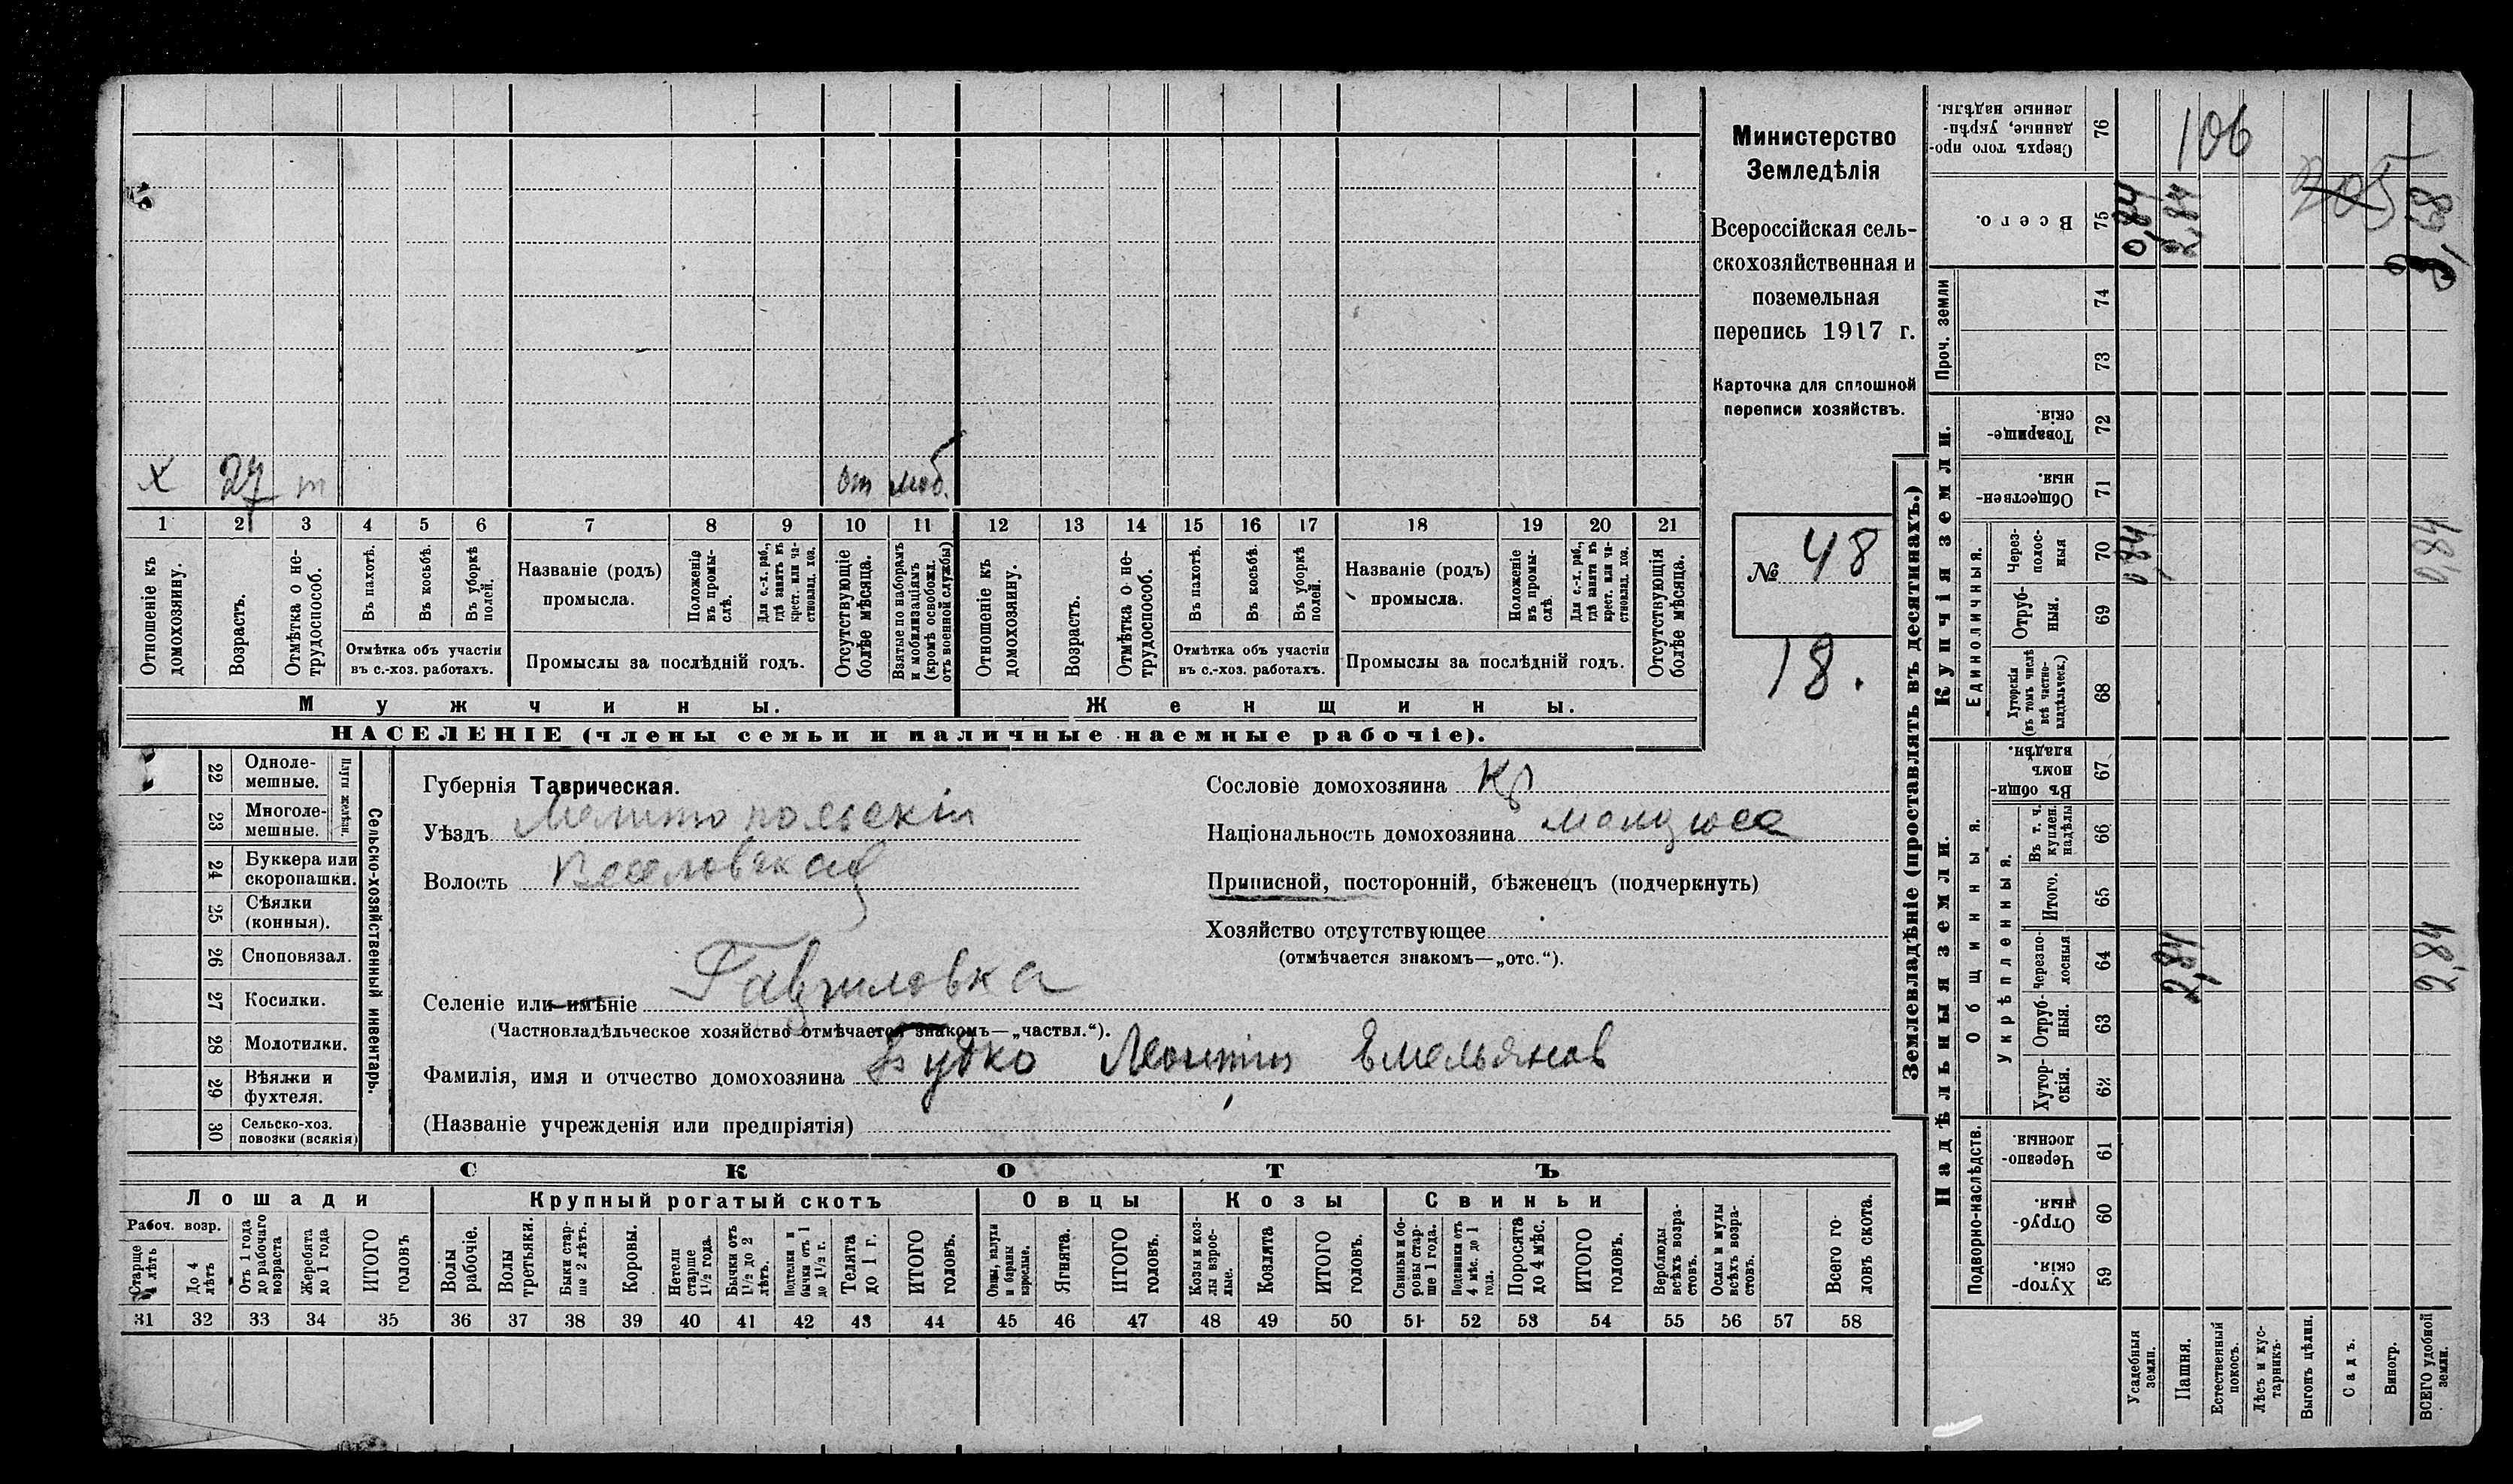 Министерство
Земледѣлія
Всероссійская сель-
скохозяйственная и
поземельная
перепись 1917 г.
Карточка для сплошной
переписи хозяйствъ.
№ 48
18.
х 27 т от моб.
1 2 3 4 5 6 7 8 9 10 11 12 13 14 15 16 17 18 19 20 21
Отношеніе къ домохозяину.
Возрастъ.
Отмѣтка о не-трудоспособ.
Въ пахотѣ.
Въ косьбѣ.
Въ уборкѣ полей.
Отмѣтка объ участіи
въ с.-хоз. работахъ.
Названіе (родъ)
промысла.
Положеніе въ промы-слѣ.
Для с.-х. раб., гдѣ занятъ въ крест. или ча-стновлад. хоз.
Промыслы за послѣдній годъ.
Отсутствующіе болѣе мѣсяца.
Взятые по наборамъ и мобилизаціямъ (кромѣ освобожд. отъ военной службы)
Отношеніе къ домохозяину.
Возрастъ.
Отмѣтка о не-трудоспособ.
Въ пахотѣ.
Въ косьбѣ.
Въ уборкѣ полей.
Отмѣтка объ участіи
въ с.-хоз. работахъ.
Названіе (родъ)
промысла.
Положеніе въ промы-слѣ.
Для с.-х. раб., гдѣ занята въ крест. или ча-стновлад. хоз.
Промыслы за послѣдній годъ.
Отсутствующія болѣе мѣсяца.
Мужчины.
Женщины.
НАСЕЛЕНІЕ (члены семьи и наличные наемные рабочіе).
22 Одноле-мешные.
23 Многоле-мешные.
Плуги желѣзн.
24 Буккера или скоропашки.
25 Сѣялки (конныя).
26 Сноповязал.
27 Косилки.
28 Молотилки.
29 Вѣялки и фухтеля.
30 Сельско-хоз. повозки (всякія)
Сельско-хозяйственный инвентарь.
Губернія Таврическая.
Уѣздъ Мелитопольскій
Волость Веселовская
Селеніе или имѣніе Гавриловка
(Частновладѣльческое хозяйство отмѣчается знакомъ—„частвл.“).
Фамилія, имя и отчество домохозяина Будко Леонтій Емельянов
(Названіе учрежденія или предпріятія)
Сословіе домохозяина Кр
Національность домохозяина
Приписной, посторонній, бѣженецъ (подчеркнуть)
Хозяйство отсутствующее
(отмѣчается знакомъ—„отс.“).
СКОТЪ
Лошади
Крупный рогатый скотъ
Овцы
Козы
Свиньи
Рабоч. возр.
Старше 4 лѣтъ
До 4 лѣтъ
Отъ 1 года до рабочаго возраста
Жеребята до 1 года
ИТОГО головъ
Волы рабочіе.
Волы третьяки.
Быки стар-ше 2 лѣтъ.
Коровы.
Нетели старше 1½ года.
Бычки отъ 1½ до 2 лѣтъ.
Подтелки и бычки отъ 1 до 1½ г.
Телята до 1 г.
ИТОГО головъ.
Овцы, валухи и бараны взрослые.
Ягнята.
ИТОГО головъ.
Козы и коз-лы взрос-лые.
Козлята
ИТОГО головъ.
Свиньи и бо-ровы стар-ше 1 года.
Подсвинки отъ 4 мѣс. до 1 года.
Поросята до 4 мѣс.
ИТОГО головъ.
Верблюды всѣхъ возра-стовъ.
Ослы и мулы всѣхъ возра-стовъ.
Всего го-ловъ скота.
31 32 33 34 35 36 37 38 39 40 41 42 43 44 45 46 47 48 49 50 51 52 53 54 55 56 57 58
Землевладѣніе (проставлять въ десятинахъ.)
Сверхъ того про-данные, укрѣп-ленные надѣлы. 76 106
205
Всего. 75 0,84 2,84 3,68
Проч. земли 74 73
Купчія земли.
Товарище-скія. 72
Обществен-ныя 71
Единоличныя.
Через-полос-ныя 70 0,84 0,84
Отруб-ныя. 69
Хуторскія (въ томъ числѣ всѣ частно-владѣльческ.) 68
Надѣльныя земли.
Общинныя.
Въ общи-номъ владѣн. 67
Укрѣпленныя.
Въ т. ч. куплен. надѣлы 66
Итого. 65
Черезпо-лосныя 64 2,84 2,84
Отруб-ныя. 63
Хутор-скія. 62
Подворно-наслѣдств.
Черезпо-лосныя. 61
Отруб-ныя. 60
Хутор-скія. 59
Усадебныя земли.
Пашня.
Естественный покосъ.
Лѣсъ и кус-тарникъ.
Выгонъ цѣлин.
Садъ.
Виногр.
ВСЕГО удобной земли.